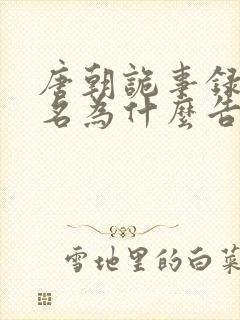 唐朝詭事録
名為什麼告
雪地里的白菜